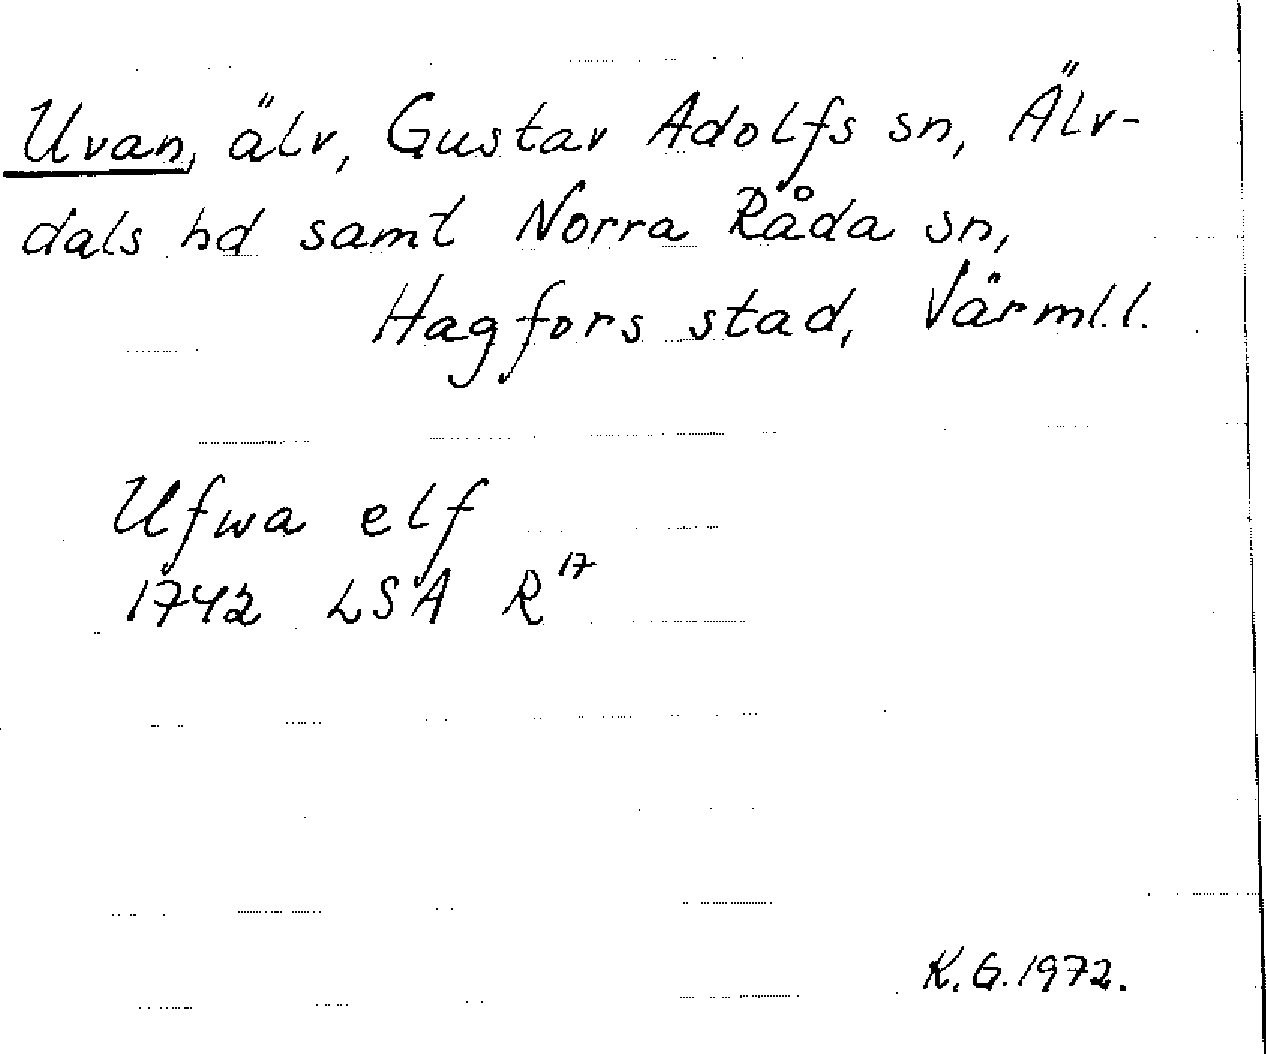 Uvan, älv, Gustav Adolfs sn, Älv-
dals hd samt Norra Råda sn,
Hagfors stad, Värml.l.
Ufwa elf
1742 LSA R17
K.G. 1972.